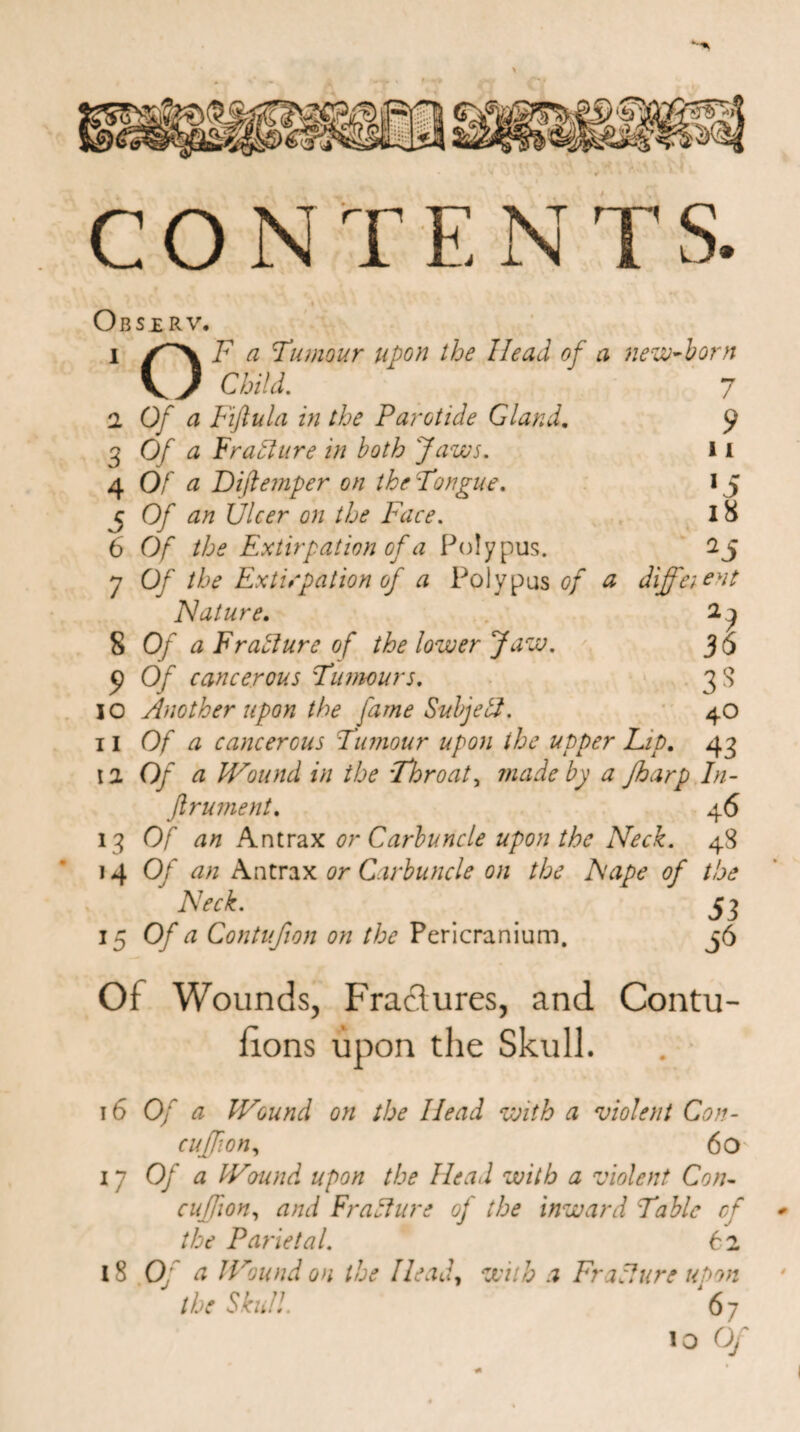 CONTENTS.
OBSERV.
1 OF a Tumour upon the Head of a new-born
Child. 7
2 Of a Fiſtula in the Parotide Gland. 9
3 Of a Fracture in both Jaws. 11
4 Of a Diſtemper on the Tongue. 15
5 Of an Ulcer on the Face. 18
6 Of the Extirpation of a Polypus. 25
7 Of the Extirpation of a Polypus of a different
Nature. 29
8 Of a Fracture of the lower Jaw. 36
9 Of cancerous Tumours. 38
10 Another upon the ſame Subject. 40
11 Of a cancerous Tumour upon the upper Lip. 43
12 Of a Wound in the Throat, made by a ſharp In-
ſtrument. 46
13 Of an Antrax or Carbuncle upon the Neck. 48
14 Of an Antrax or Carbuncle on the Nape of the
Neck. 53
15 Of a Contuſion on the Pericranium. 56
Of Wounds, Fractures, and Contu-
ſions upon the Skull.
16 Of a Wound on the Head with a violent Con-
cuſſion, 60
17 Of a Wound upon the Head with a violent Con-
cuſſion, and Fracture of the inward Table of
the Parietal. 62
18 Of a Wound on the Head, with a Fracture upon
the Skull. 67
10 Of